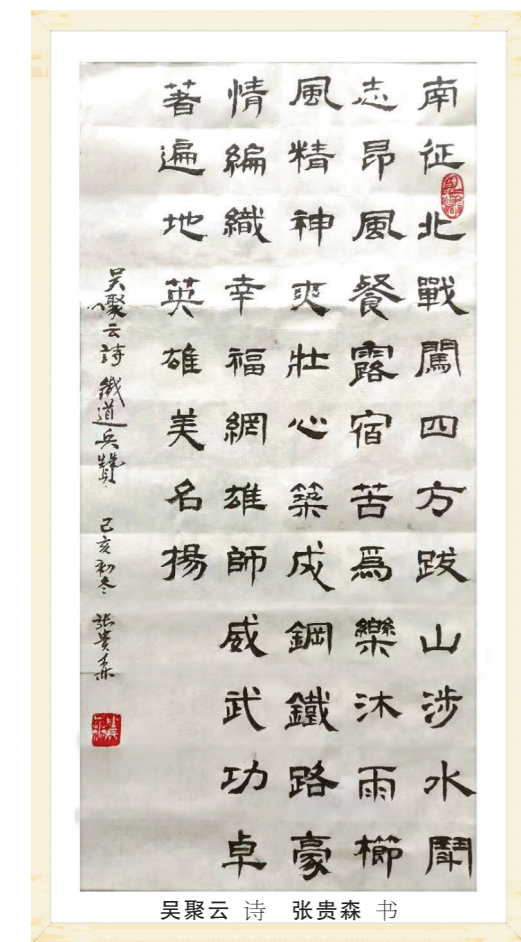 南征北戰闖四方跋山涉水鬥
志昂風餐露宿苦爲樂沐雨櫛
風精神爽壯心築成鋼鐵路豪
情編織幸福網雄師威武功卓
著遍地英雄美名揚
吴聚云詩 鐵道兵贊 己亥初冬 張貴森
吴聚云 诗 张贵森 书